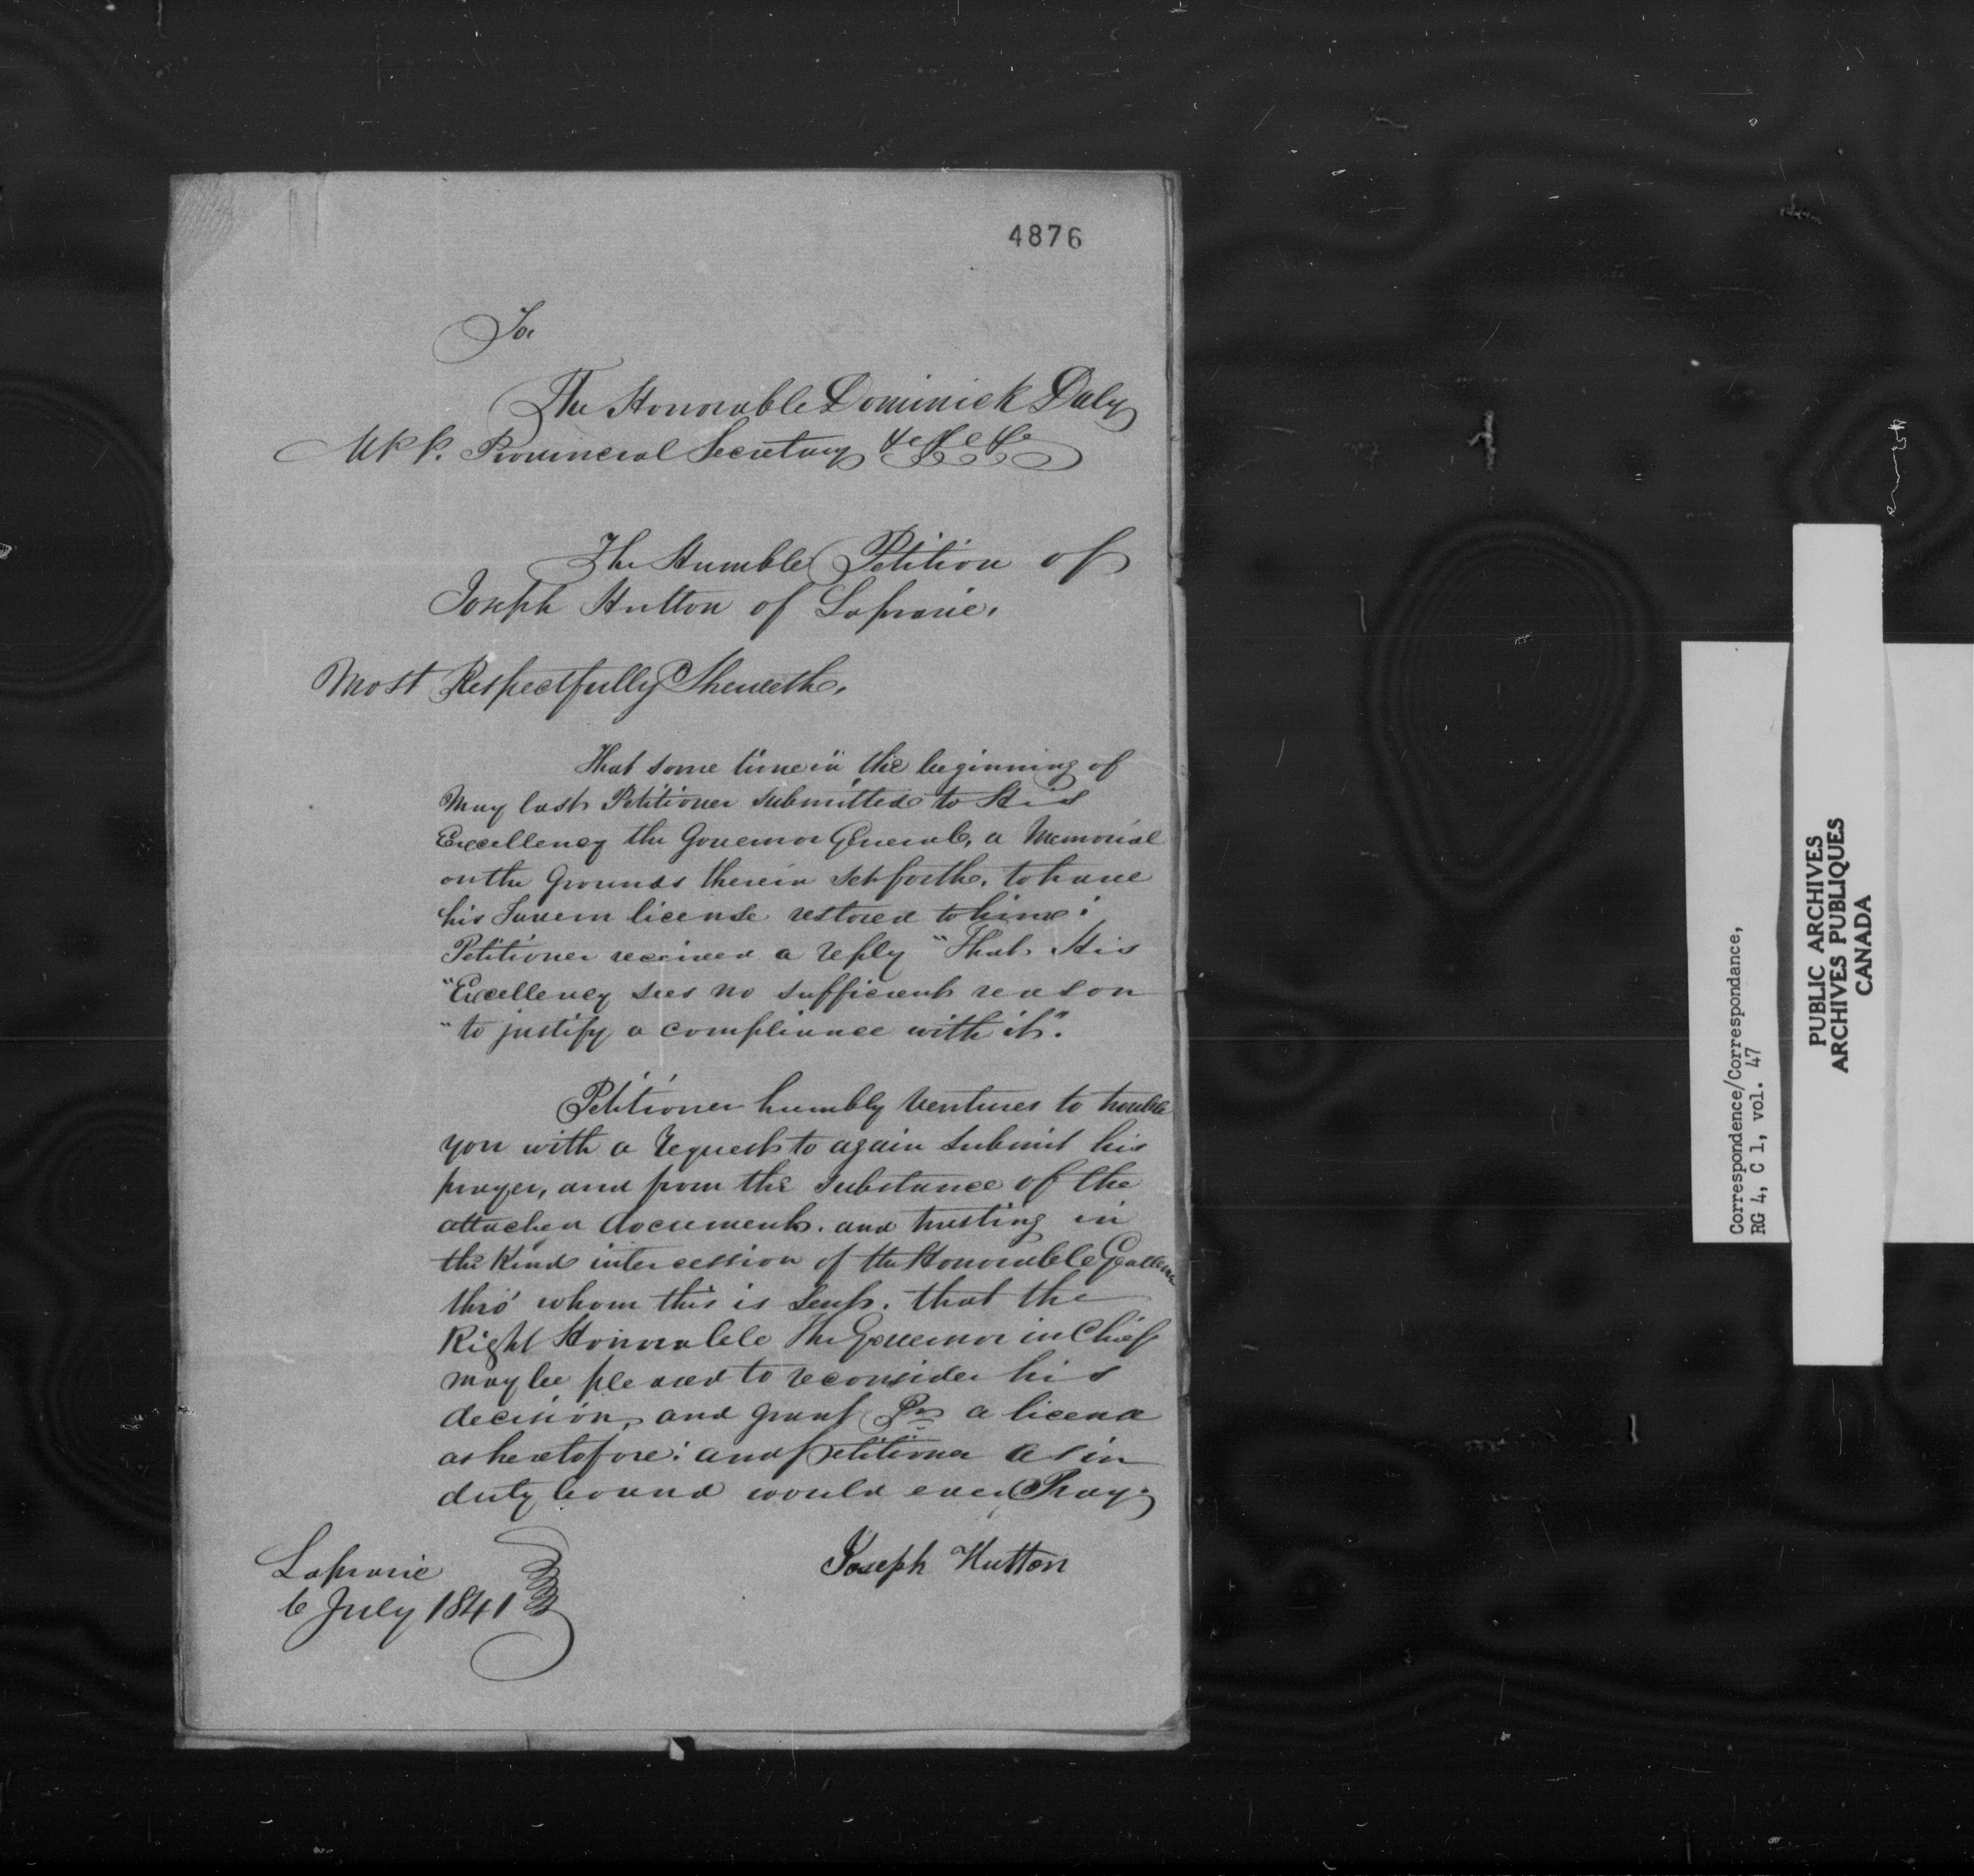 4876
To
The Honorable Dominick Daly
M.P.P. Provincial Secretary &c &c &c
The Humble Petition of
Joseph Hutton of Laprarie.
Most Respectfully Sheweth,
That some time in the beginning of
May last Petitioner submitted to His
Excellency the Governor General, a Memorial
on the Grounds therein set forth, to have
his Tavern license restored to him:
Petitioner received a reply "That His
"Excellency sees no sufficient reason
"to justify a compliance with it".
Petitioner humbly ventures to trouble
you with a request to again submit his
prayer, and from the substance of the
attached documents. and trusting in
the Kind intercession of the Honorable Gentleman
thro' whom this is sent, that the
Right Honorable The Governor in Chief
may be pleased to reconsider his
decision, and grant Pr a licence
as heretofore: and Petitioner as in
duty bound would ever Pray.
Joseph Hutton
Laprarie
6 July 1841
Correspondence/Correspondance,
RG 4, C 1, vol. 47
PUBLIC ARCHIVES
ARCHIVES PUBLIQUES
CANADA